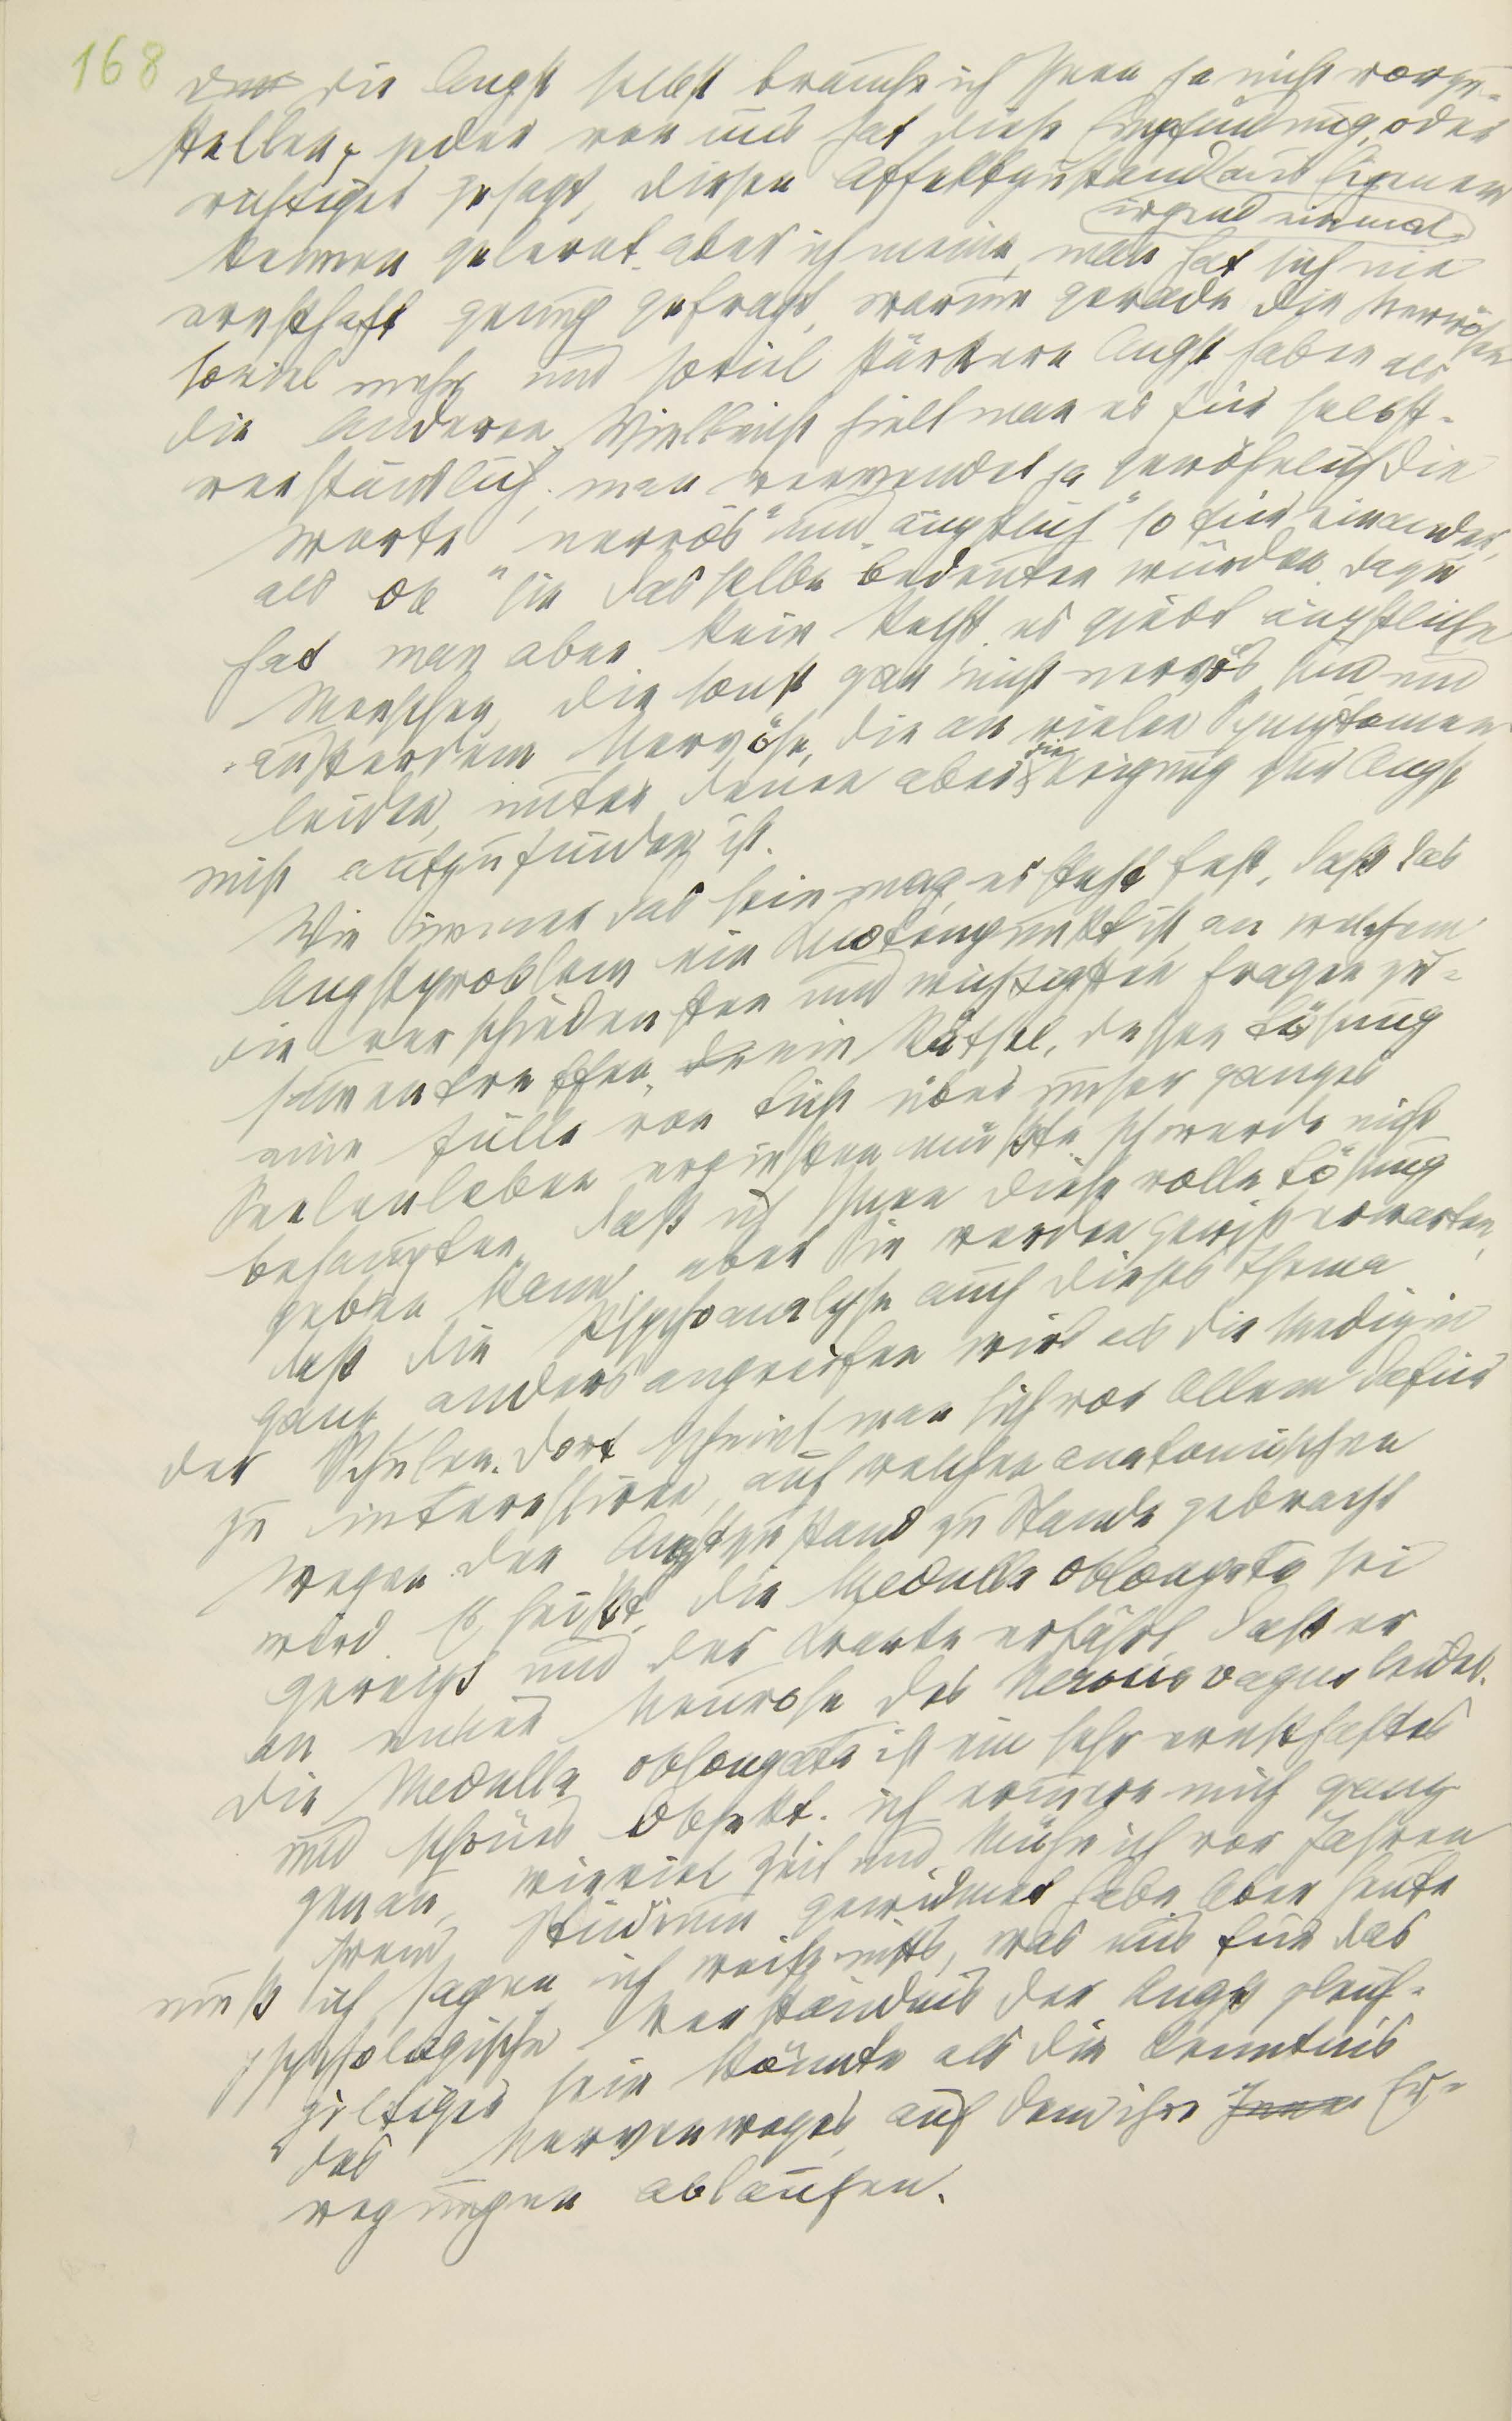 168
Den die Angst selbst brauche ich Ihnen ja nicht vorzu-
stellen, jeder von uns hat diese Empfindung, oder
richtiger gesagt, diesen Affektzustand aus Eigenem
irgend einmal
kennen gelernt. aber ich meine, man hat sich nie
ernsthaft genug gefragt, warum gerade die Nervösen
soviel mehr und soviel stärkere Angst haben als
die Anderen. Vielleicht hielt man es für selbst-
verständlich; man verwendet ja gewöhnlich die
Worte „nervös“ und „ängstlich“ so für einander,
als ob sie dasselbe bedeuten würden. dazu
hat man aber kein Recht. es giebt ängstliche
Menschen, die sonst gar nicht nervös sind und
außerdem Nervöse, die an vielen Symptomen
leiden, unter denen aber die Neigung zur Angst
nicht aufzufinden ist.
Wie immer das sein mag, es steht fest, daß das
Angstproblem ein Knotenpunkt ist, an welchem
die verschiedensten und wichtigsten Fragen zu-
sammentreffen, ein Rätsel, dessen Lösung
eine Fülle von Licht über unser ganzes
Seelenleben ergießen müßte. Ich werde nicht
behaupten, daß ich Ihnen diese volle Lösung
geben kann, aber Sie werden gewiß erwarten,
daß die Psychoanalyse auch dieses Thema
ganz anders angreifen wird als die Medizin
der Schulen. Dort scheint man sich vor Allem dafür
zu interessiren, auf welchen anatomischen
Wegen der Angstzustand zu Stande gebracht
wird. Es heißt, die Medulla oblongata sei
gereizt und der Kranke erfährt, daß er
an einer Neurose des Nervus vagus leidet.
Die Medulla oblongata ist ein sehr ernsthaftes
und schönes Objekt. ich erinnere mich ganz
genau, wieviel Zeit und Mühe ich vor Jahren
ihrem Studium gewidmet habe. Aber heute
muß ich sagen ich weiß nichts, was uns für das
psychologische Verständnis der Angst gleich-
giltiger sein könnte als die Kenntnis
des Nervenweges, auf dem ihre Er-
regungen ablaufen.